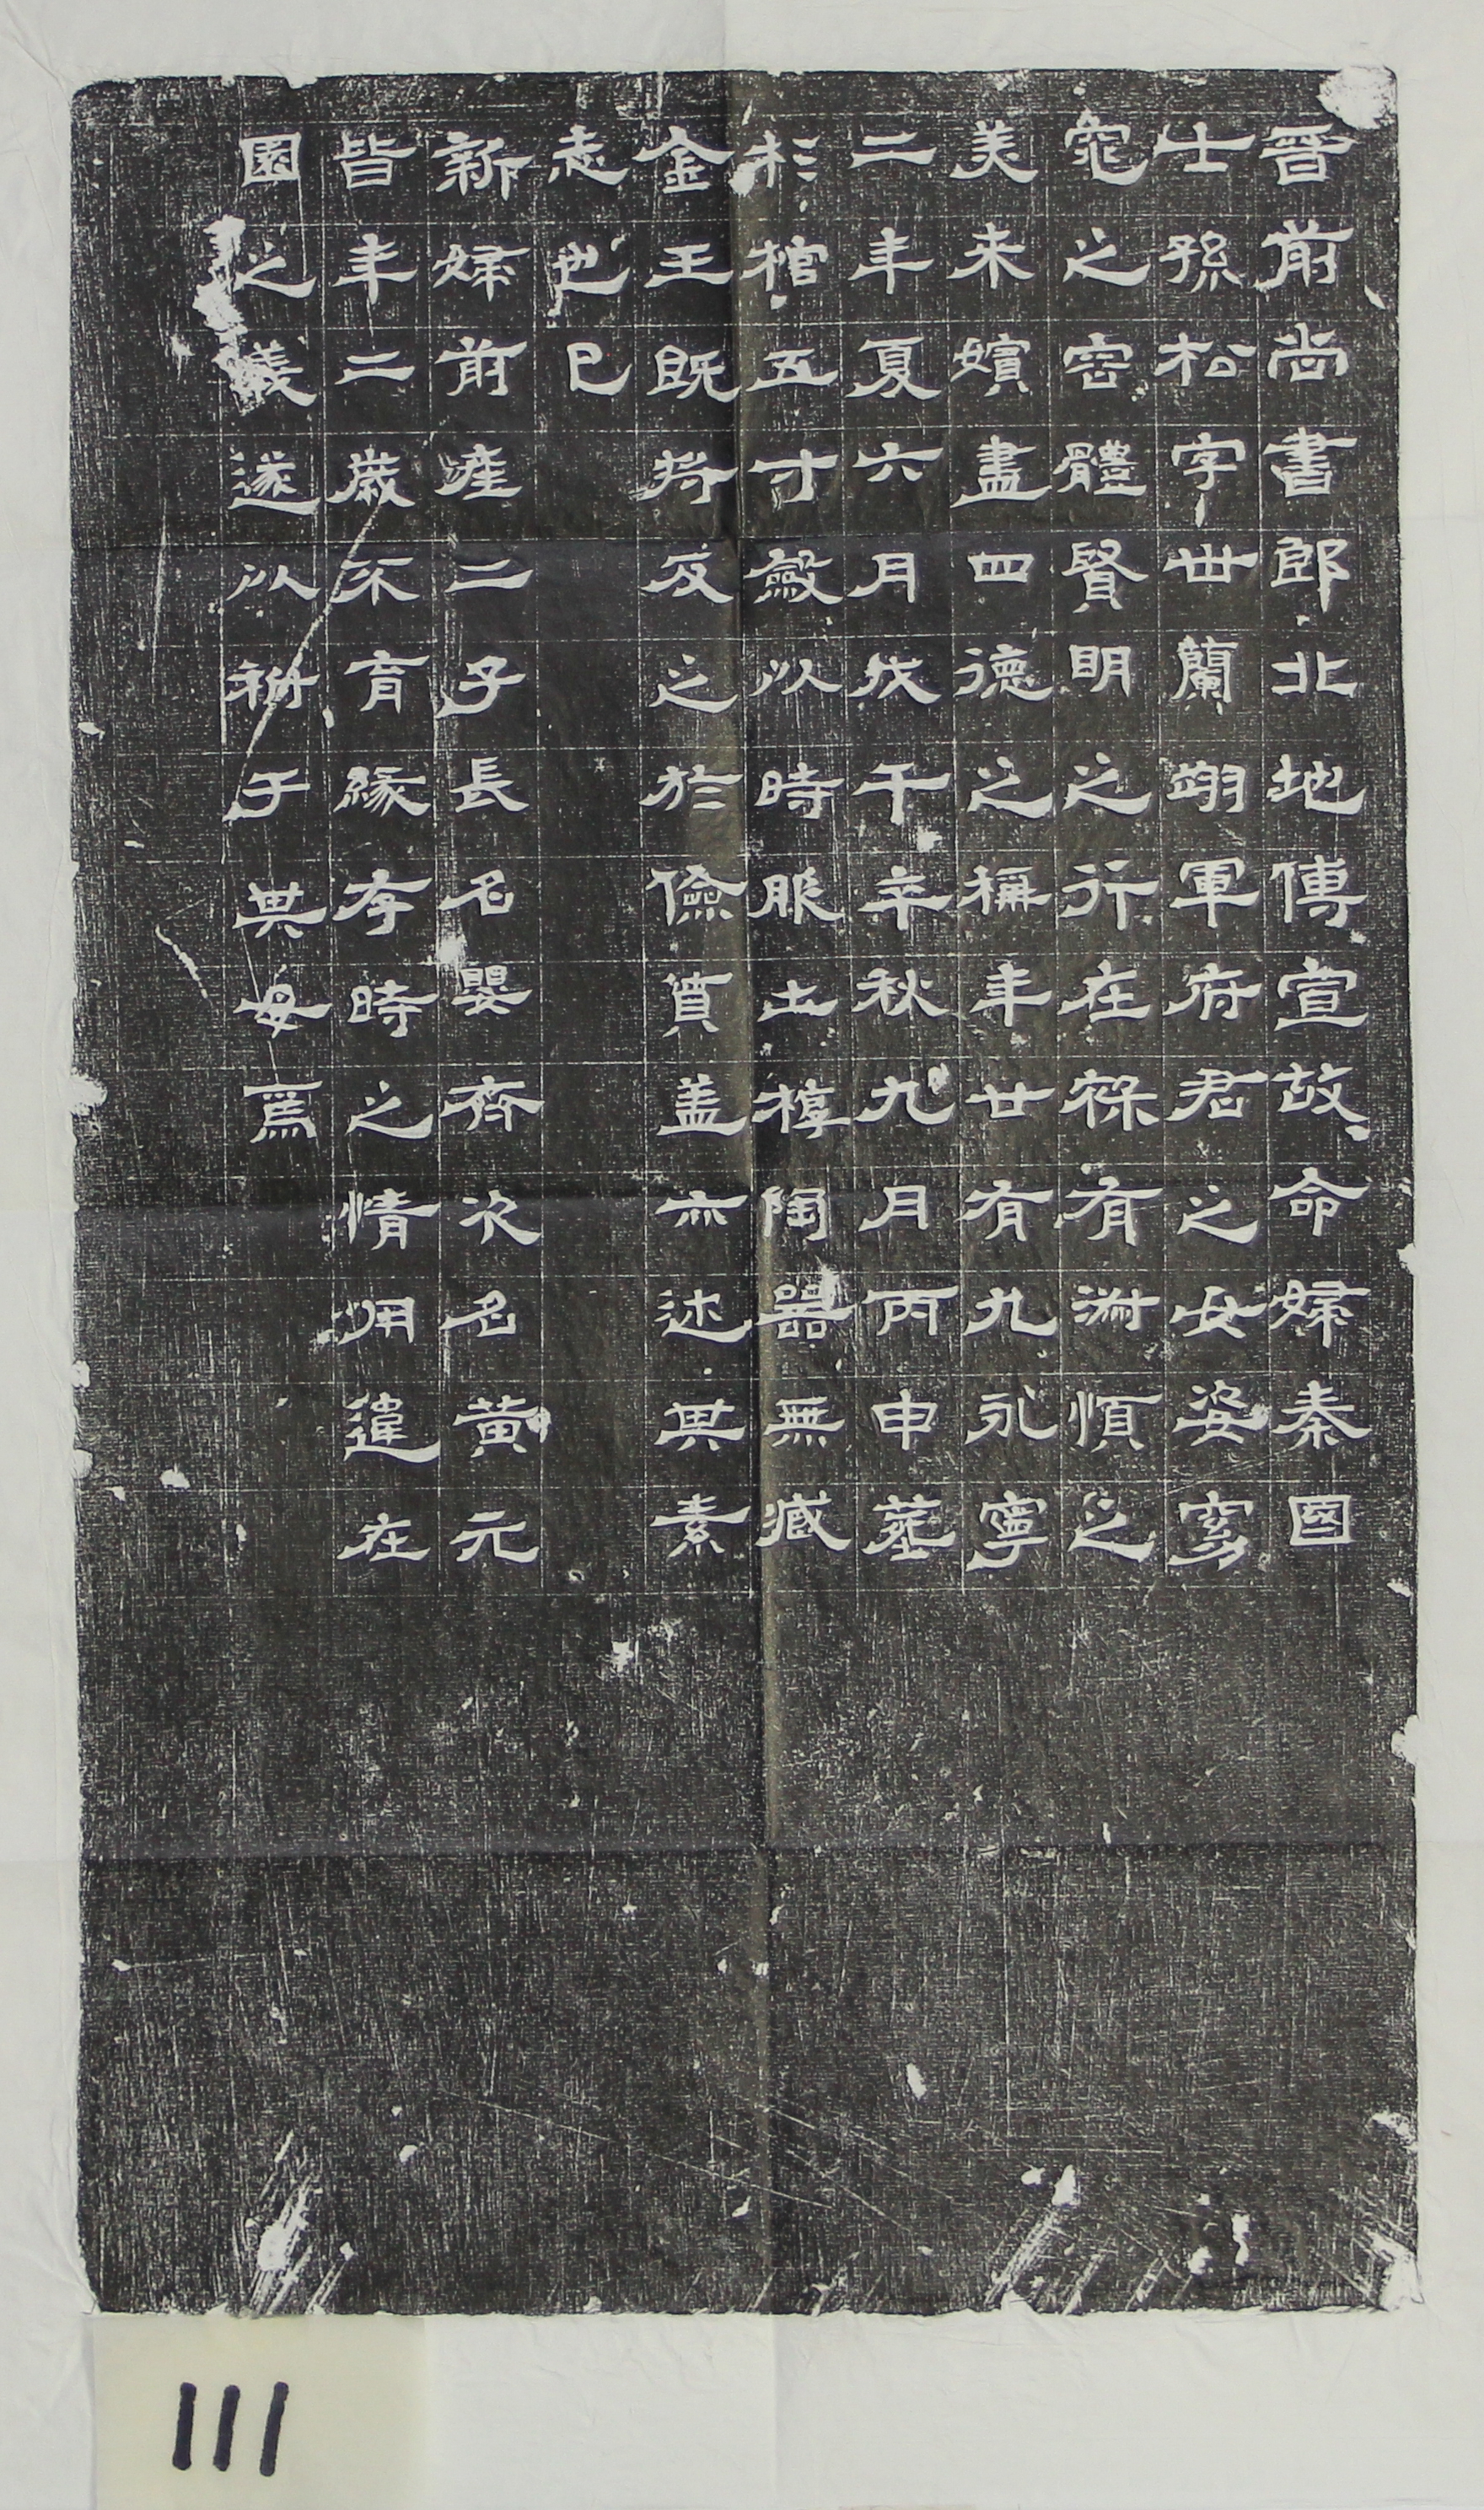 晉前尚書郎北地傅宣故命婦秦國
士孫松字世蘭翊軍府君之女姿窈
窕之容體賢明之行在祿有淑順之
美來嬪盡四德之稱年廿有九永寧
二年夏六月戊午卒秋九月丙申塟
杉棺五寸斂以時服土槨陶器無臧
金玉既將反之於儉質盖亦述其素
志也已
新婦前產二子長名嬰齊次名黃元
皆年二歲不育緣存時之情用違在
園之義遂以祔于其母焉
111